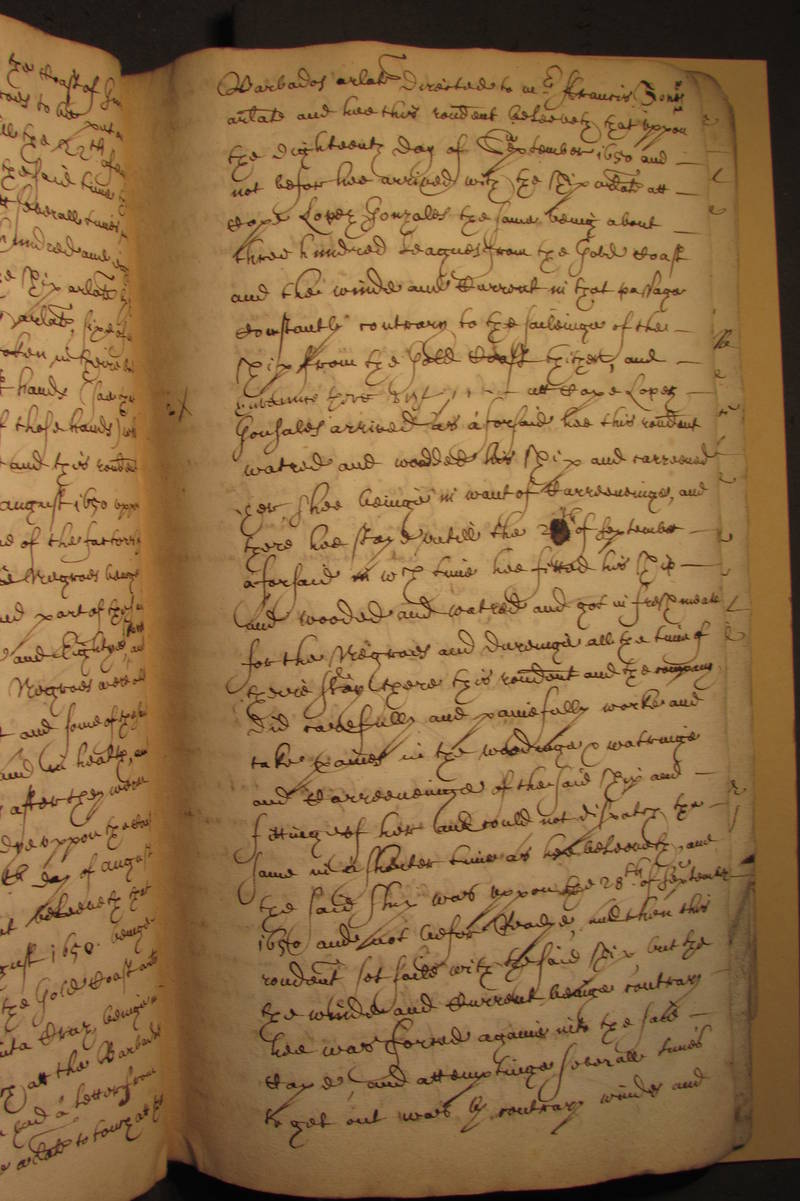 the Coast of
the 27th of
the said time
severall times
hundred and
the ship arlate
arlate, sixe
taken in theire
hands (saveing
of those hands)
and this rendent
August 1650 uppon
of the factory
Negroes being
and part of the
and Eightye
Negroes were
and some of
and in health, and
after they were
uppon the
day of August
beleeveth that
August 1650. beinge
the Gold Coast and
beinge
att the Barbados
had a letter from
arlate to touch att the
Barbados arlate directed to mr Francis Jones
arlate and hee this rendent beleeveth that uppon
the Eighteenth day of September 1650 and
not before hee arrived with the ship arlate att
Cape Lopez Gonzales the same being about
three hundred Leagues from the Gold Coast
and the winde and Current in that passage
constantly contrary to the saileinge of the
ship from the Gold Coast thither, and
beinge there att Cape Lopez
Gonsales arrived as aforsaid hee this rendent
watred and wooded his ship and carreened
her, shee beinge in want of Carreeneinge, and
there hee stayd untill the 28th of September
aforsaid in wch time hee fitted his ship
and wooded and watred and got in fresh meate
for the Negroes and dureinge all the time of
theire stay there this rendent and the company
did carefully and painefully worke and
take paines in the woodinge & watringe
and Carreeneinge of the said ship and
fitting of her and could not dispatch the
same in a shorter time as hee beleeveth, and
the said ship was uppon the 28th of September
1650 and not before Ready, and then this
rendent set saile with the said ship, but the
the winde and Current beinge contrary
hee was forced againe into the said
Cape, and attemptinge severall times
to get out was by contrary windes and